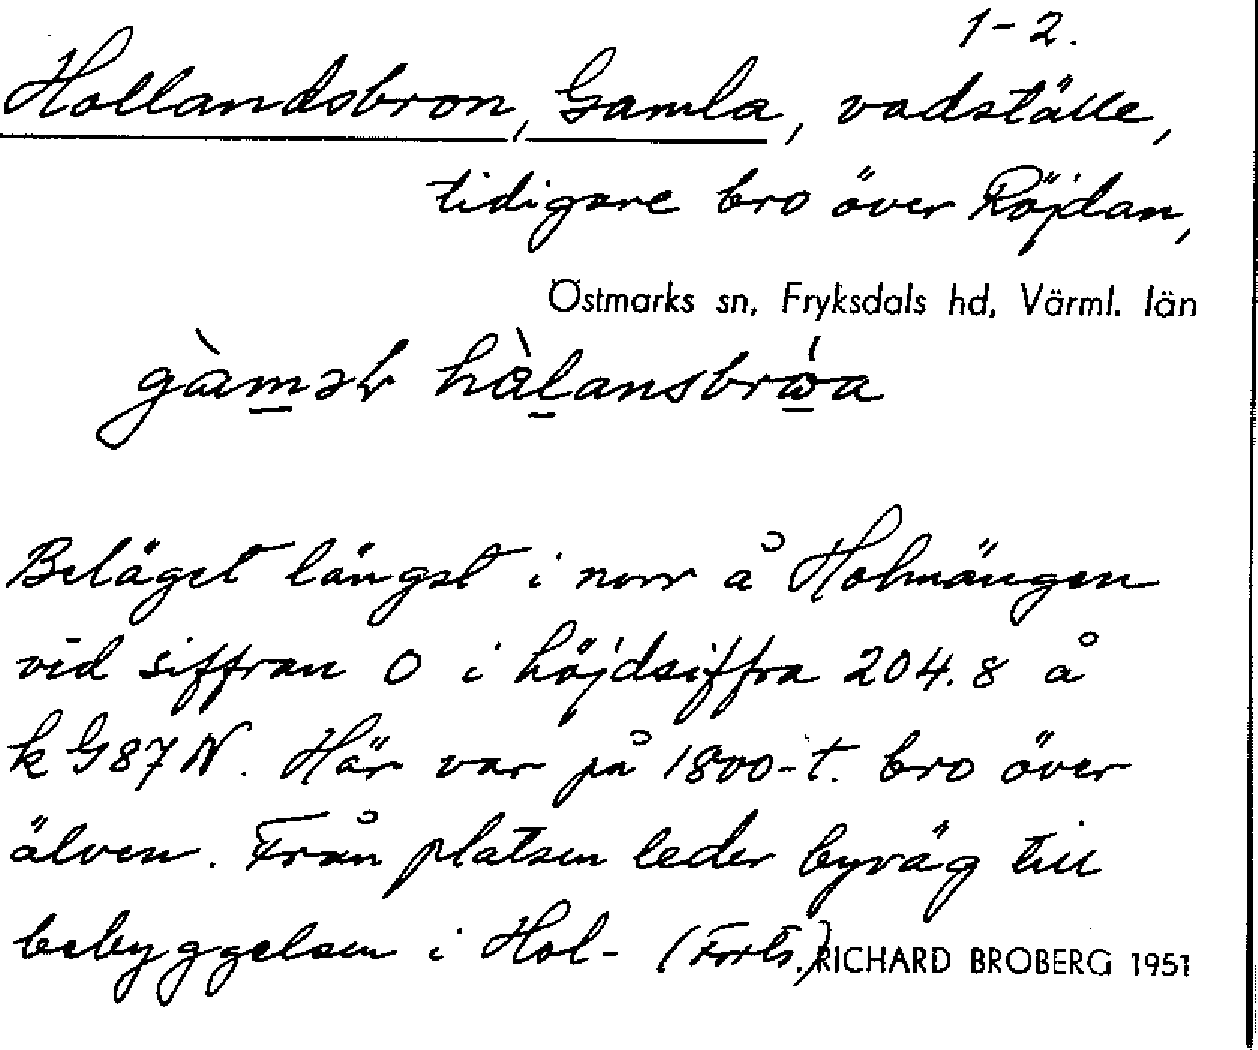 1-2.
Hollandsbron, Gamla, vadställe,
tidigare bro över Röjdan,
Östmarks sn, Fryksdals hd, Värml. län
Beläget längst i norr å Holmängen
vid siffran 0 i höjdsiffra 204.8 å
k G87N. Här var på 1800-t. bro över
älven. Från platsen leder byväg till
bebyggelsen i Hol- (Forts.)
RICHARD BROBERG 1951